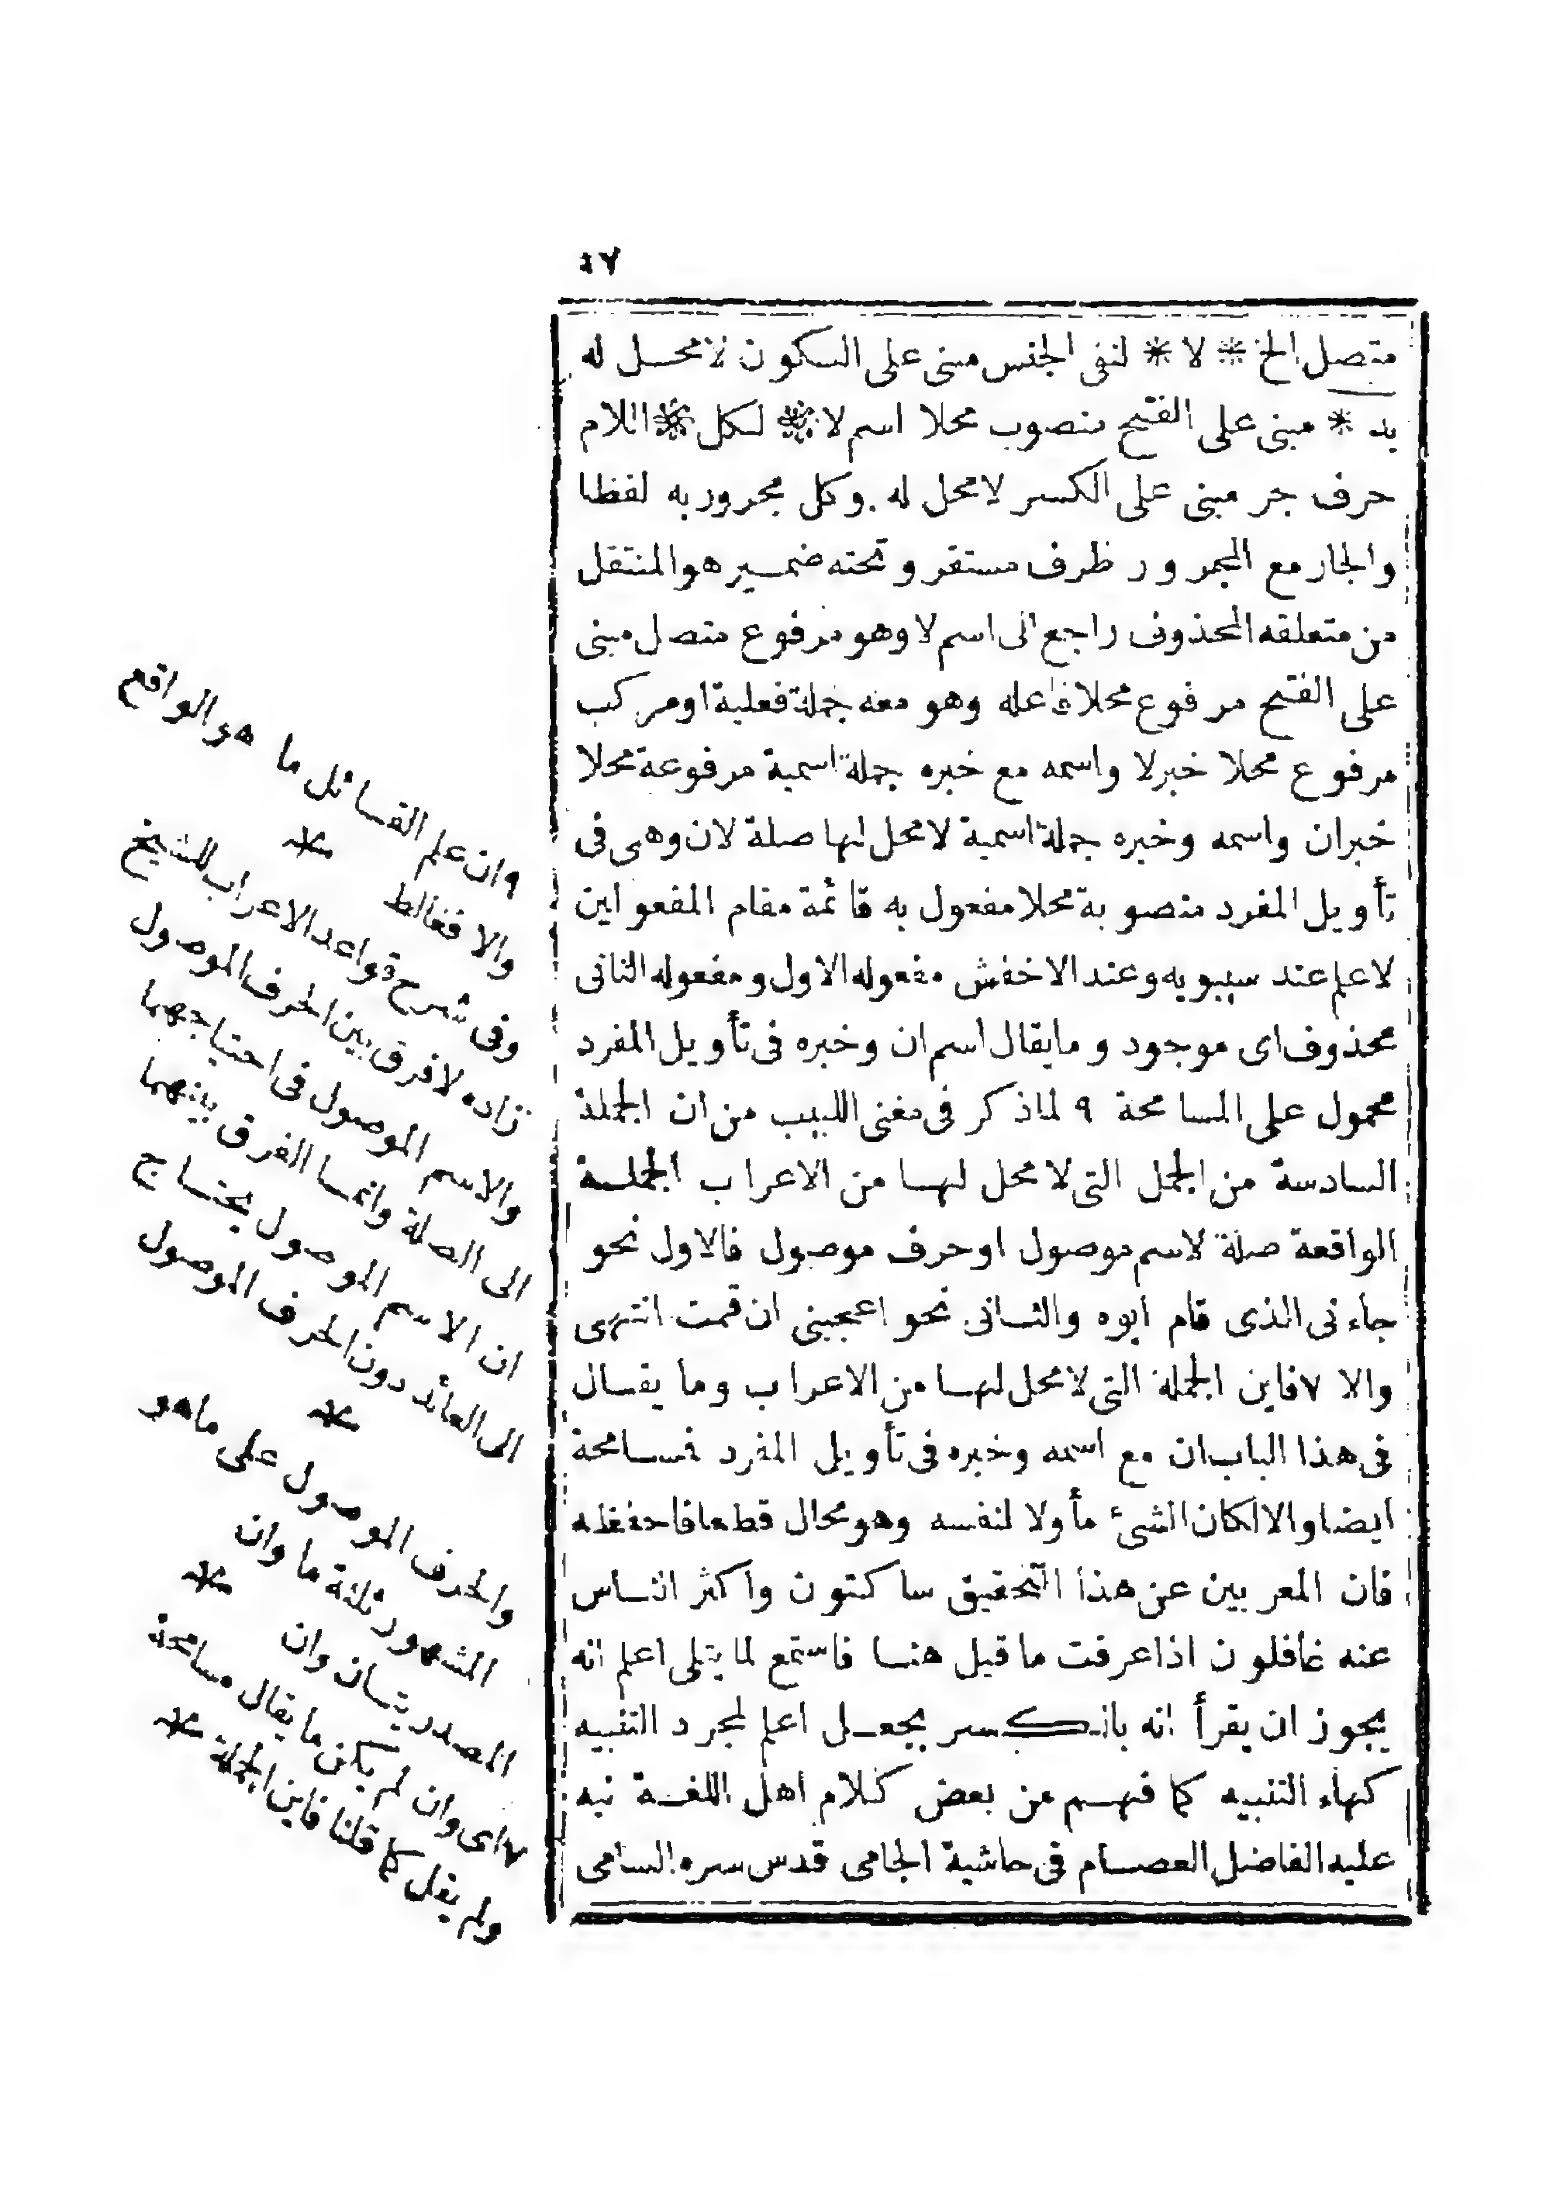 ٤٧
متصل الخ * لا * لنفى الجنس مبنى على السكون لا محل له
بد * مبنى على الفتح منصوب محلا اسم لا * لكل * اللام
حرف جر مبنى على الكسر لا محل له . وكل مجرور به لفظا
والجار مع المجرور ظرف مستقر وتحته ضمير هو المنتقل
من متعلقه المحذوف راجع الى اسم لا وهو مرفوع متصل مبنى
على الفتح مرفوع محلا فاعله وهو معه جملة فعلية او مركب
مرفوع محلا خبر لا واسمه مع خبره جملة اسمية مرفوعة محلا
خبران واسمه وخبره جملة اسمية لا محل لها صلة لان وهى فى
تأويل المفرد منصوبة محلا مفعول به قائمة مقام المفعولين
لاعلم عند سيبويه وعند الاخفش مفعوله الاول ومفعوله الثانى
محذوف اى موجود وما يقال اسم ان وخبره فى تأويل المفرد
محمول على المسامحة ٩ لما ذكر فى مغنى اللبيب من ان الجملة
السادسة من الجمل التى لا محل لها من الاعراب الجملة
الواقعة صلة لاسم موصول او حرف موصول فالاول نحو
جاءنى الذى قام ابوه والثانى نحو اعجبنى ان قمت انتهى
والا ٧ فاين الجملة التى لا محل لها من الاعراب وما يقال
فى هذا الباب ان مع اسمه وخبره فى تأويل المفرد فمسامحة
ايضا والا لكان الشئ مأولا لنفسه وهو محال قطعا فاحفظه
فان المعربين عن هذا التحقيق ساكتون واكثر الناس
عنه غافلون اذا عرفت ما قيل هنا فاستمع لما يتلى اعلم انه
يجوز ان يقرأ انه بالكسر بجعل اعلم لمجرد التنبيه
كهاء التنبيه كما فهم من بعض كلام اهل اللغة نبه
عليه الفاضل العصام فى حاشية الجامى قدس سره السامى
٩ ان علم القائل ما هو الواقع
والا فغالط *
وفى شرح قواعد الاعراب للشيخ
زاده لا فرق بين الحرف الموصول
والاسم الموصول فى احتياجهما
الى الصلة وانما الفرق بينهما
ان الاسم الموصول يحتاج
الى العائد دون الحرف الموصول
*
والحرف الموصول على ما هو
المشهور ثلثة ما وان
المصدريتان وان *
٧ اى وان لم يكن ما يقال مسامحة
ولم يقل كما قلنا فاين الجملة *